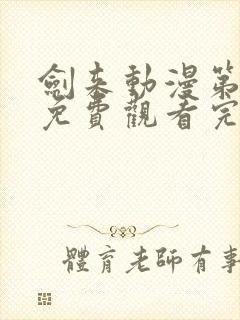 劍来動漫第
免費觀看完
體育老師有事